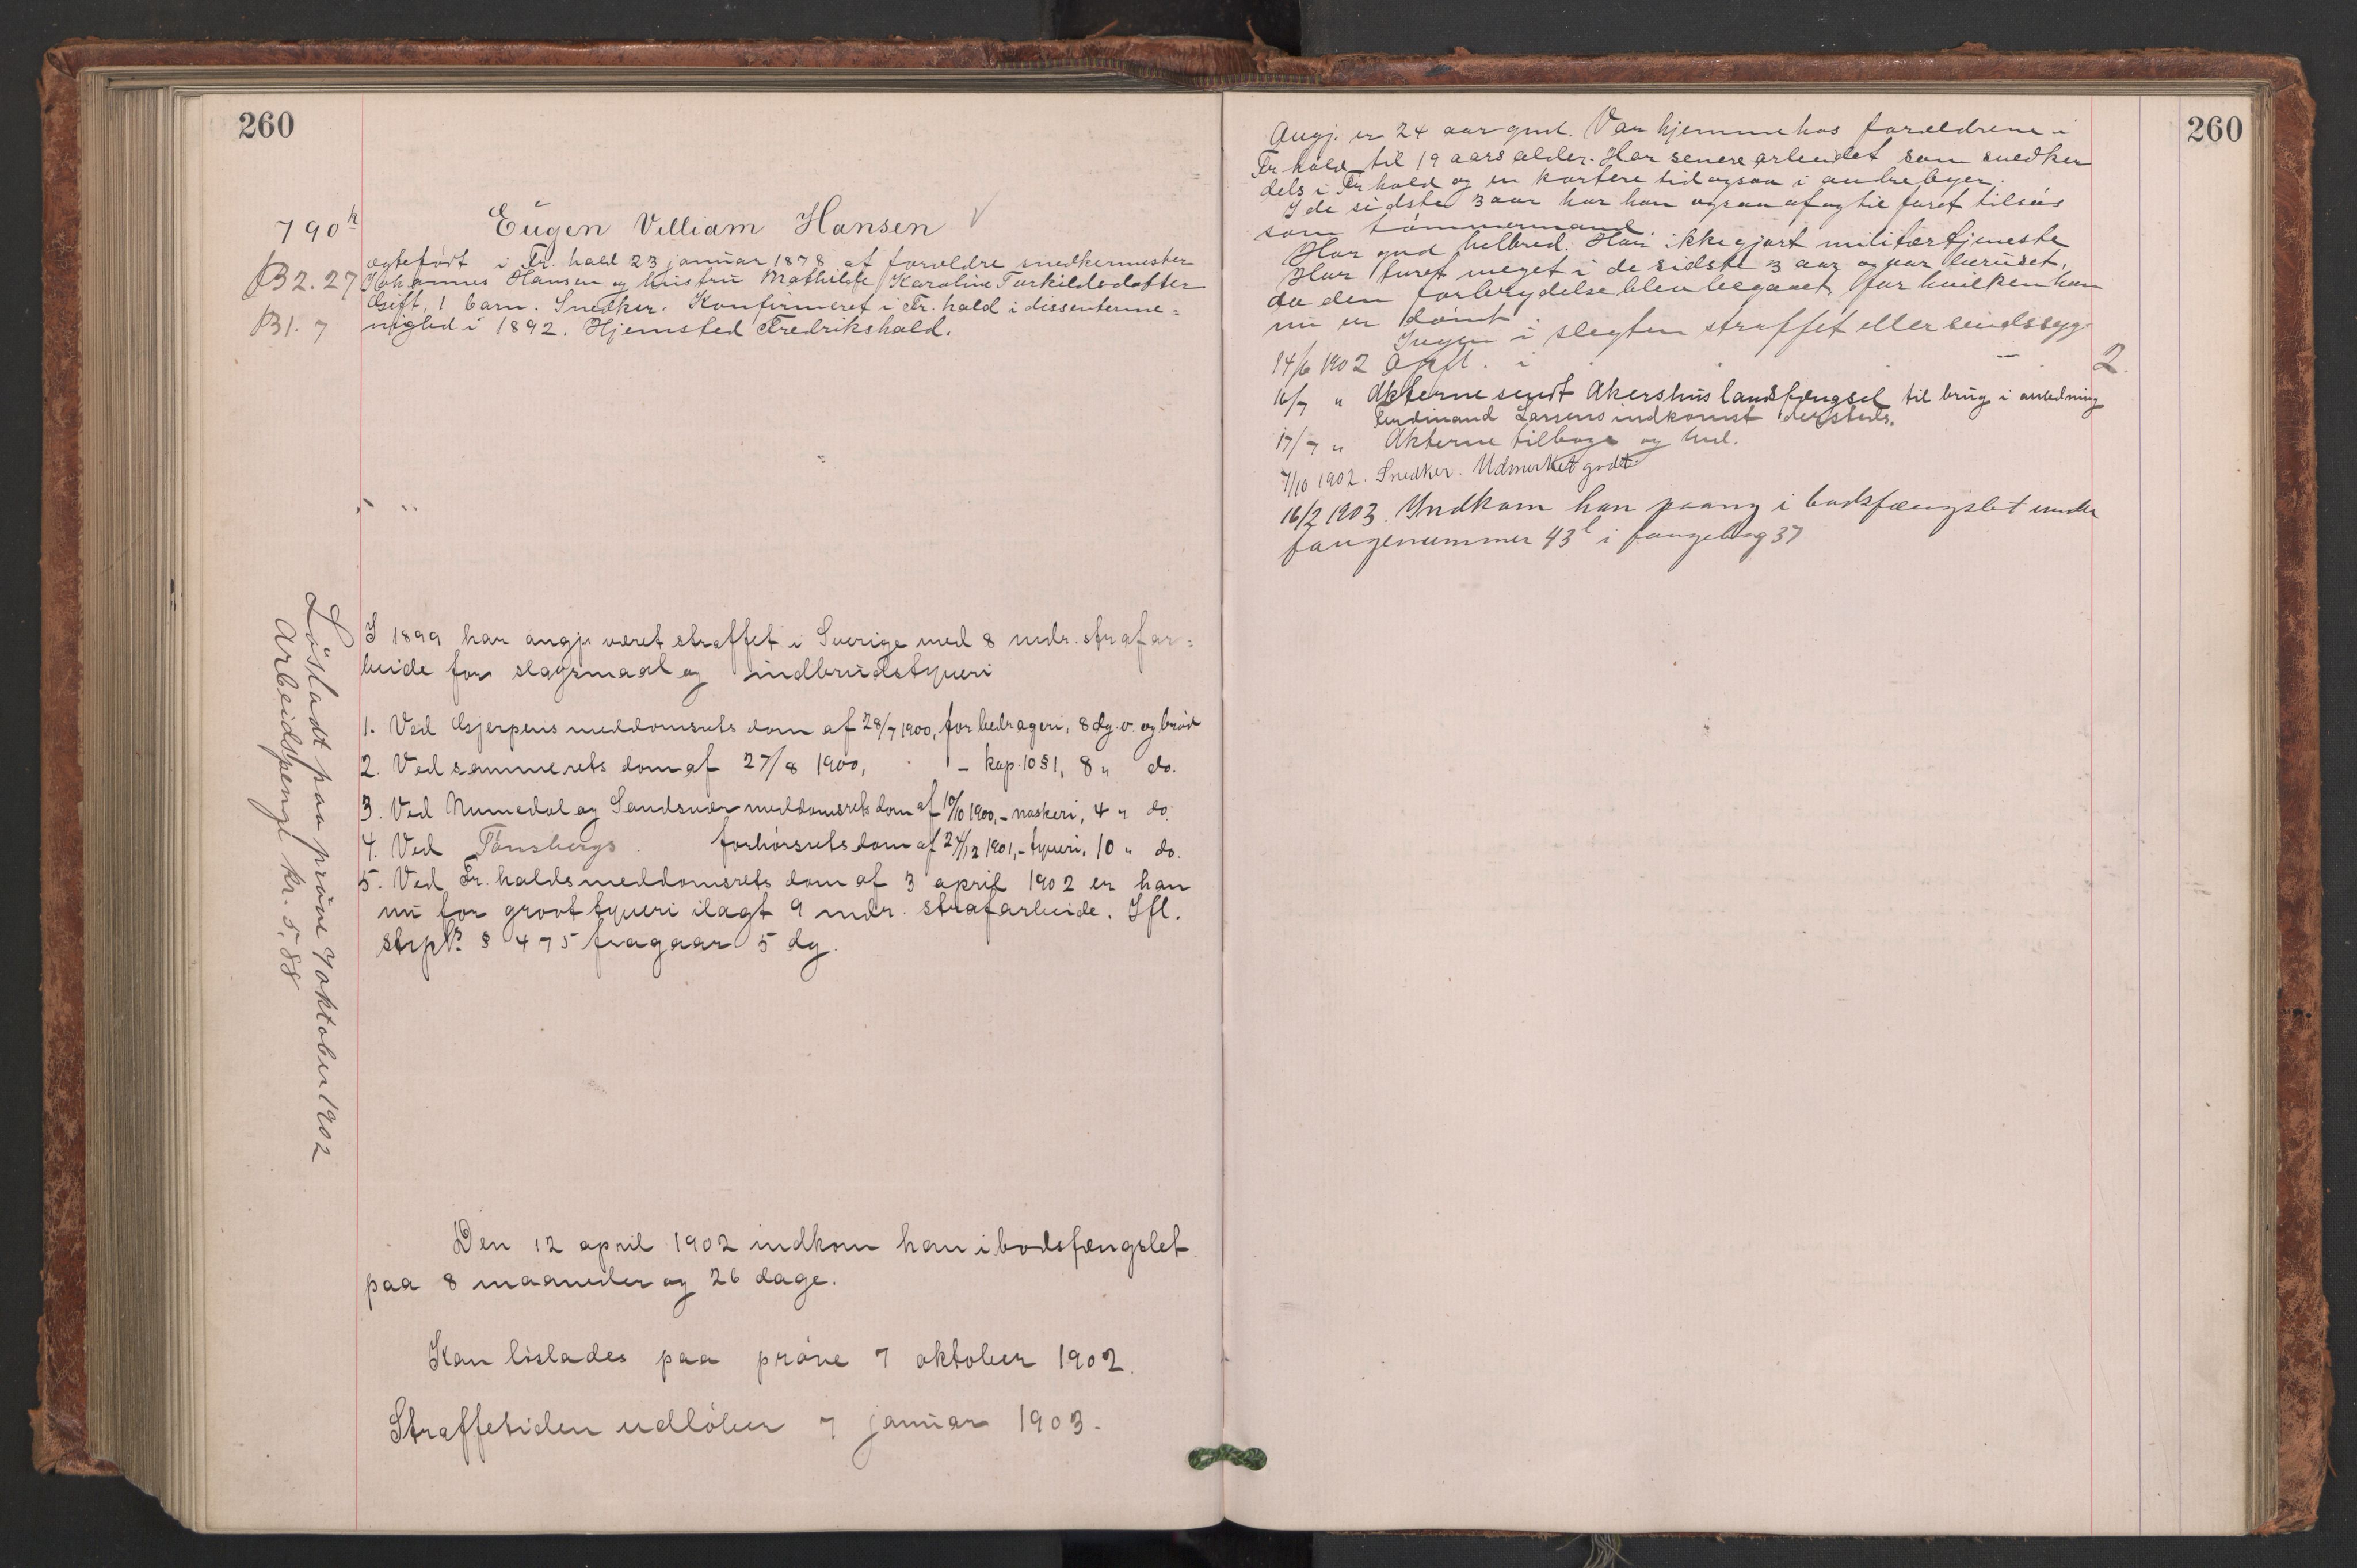 260
790k
Eugen Villiam Hansen
ægtefødt i Fr. hald 23 januar 1878 af forældre snedkermester
B2. 27 Johannes Hansen og hustru Mathilde Karoline Torkildsdatter
Gift, 1 barn. Snedker. Konfirmeret i Fr. hald i dissenterme=
B1. 7 nighed i 1892. Hjemsted Fredrikshald.
I 1899 har angj. været straffet i Sverige med 8 mdr. strafar=
beide for slagsmaal og indbrudstyveri
1. Ved Gjerpens meddomsrets dom af 28/7 1900, for bedrageri, 8 dg. v. og brød
2. Ved sammerets dom af 27/8 1900, - kap. 10 § 1, 8 " do.
3. Ved Numedal og Sandsvær meddomsrets dom af 10/10 1900, - naskeri, 4 " do.
4. Ved Tønsbergs forhørsrets dom af 24/12 1901, - tyveri, 10 " do.
5. Ved Fr. halds meddomsrets dom af 3 april 1902 er han
nu for grovt tyveri ilagt 9 mdr. strafarbeide. Ifl.
strpl. § 475 fragaar 5 dg.
Løsladt paa prøve 7 oktober 1902
Arbeidspenge kr. 5,88
Den 12 april 1902 indkom han i bodsfængslet
paa 8 maaneder og 26 dage.
Kan løslades paa prøve 7 oktober 1902.
Straffetiden udløber 7 januar 1903.
260
Angj. er 24 aar gml. Var hjemme hos forældrene i
Fr hald til 19 aars alder. Har senere arbeidet som snedker
dels i Fr hald og en kortere tid ogsaa i andre byer.
I de sidste 3 aar har han ogsaa af og til faret tilsøs
som tømmermand.
Har god helbred. Har ikke gjort militærtjeneste
Har turet meget i de sidste 3 aar og var beruset,
da den forbrydelse blev begaaet, for hvilken han
nu er dømt.
Ingen i slegten straffet eller sindssyg
14/6 1902 Opfl. i - 2.
16/7 " Akterne sendt Akershus landsfængsel til brug i anledning
Ferdinand Larsens indkomst dersteds.
17/7 " Akterne tilbage og hnl.
7/10 1902. Snedker. Udmerket godt.
16/2 1903. Indkom han paany i bodsfængslet under
fangenummer 43l i fangebog 37